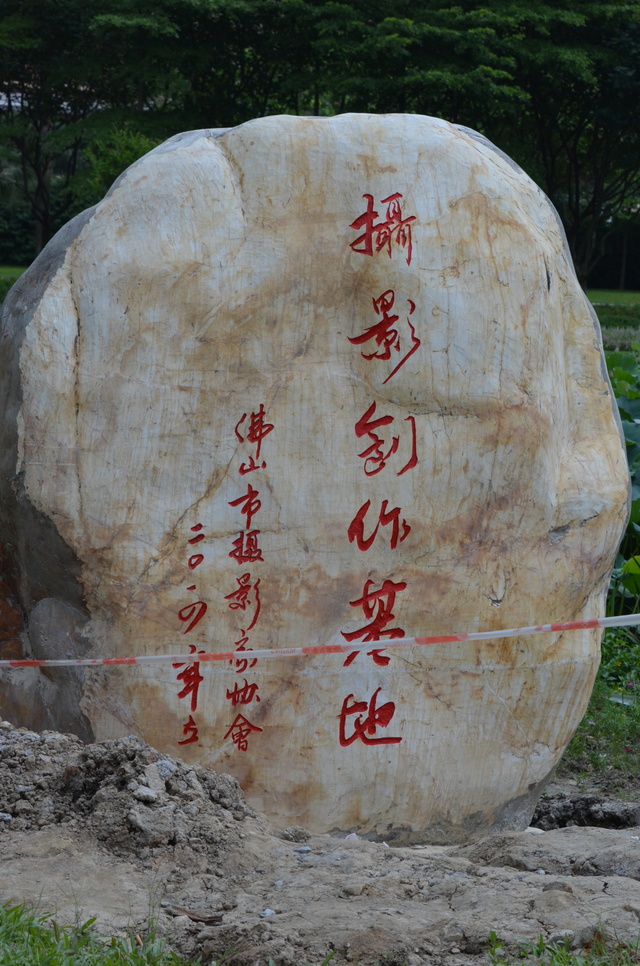 攝影創作基地
佛山市攝影家協會
二〇一四年立